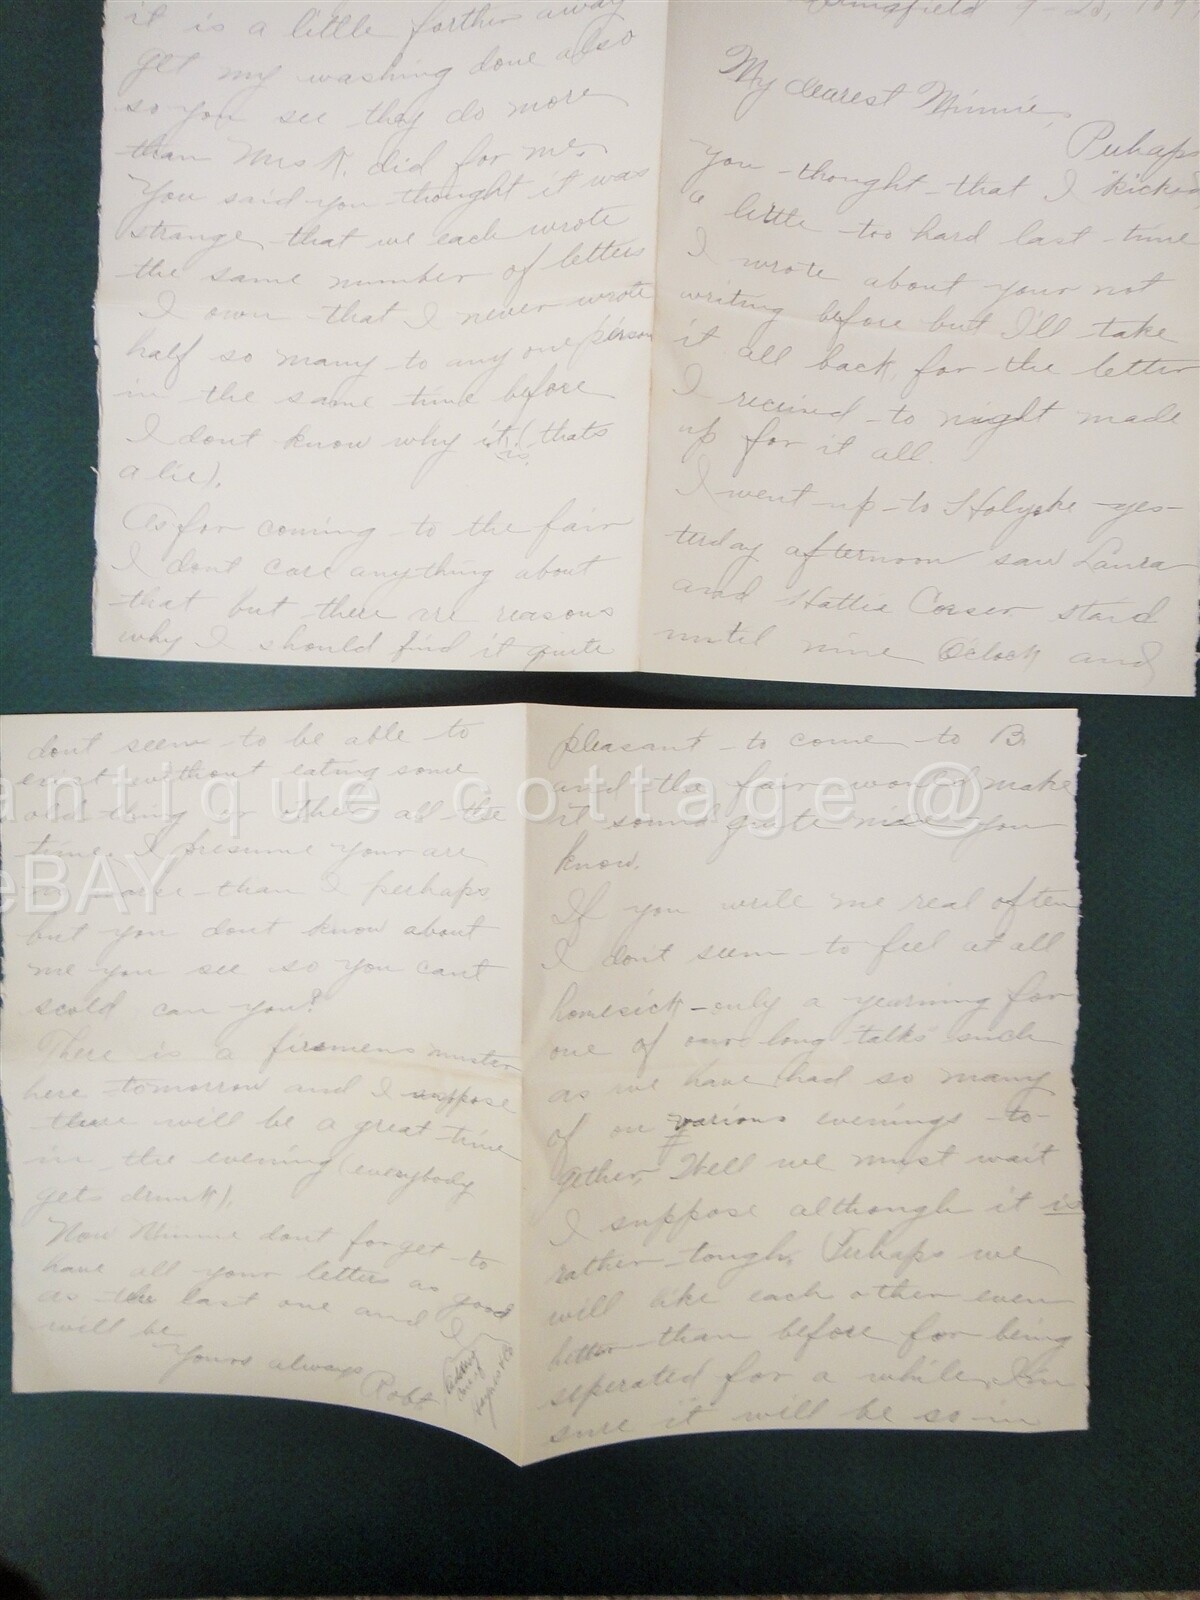 Springfield 9-25, 189
My dearest Minnie,
Perhaps
you thought that I "kicked
a little too hard last time
I wrote about your not
writing before but I'll take
it all back, for the letter
I recived to night made
up for it all.
I went up to Holyoke yes-
terday afternoon saw Laura
and Hattie Corser staid
until nine O'clock and
it is a little farther away
get my washing done also
so you see they do more
than Mrs K. did for me.
You said you thought it was
strange that we each wrote
the same number of letters
I own that I never wrote
half so many to any one person
in the same time before
I dont know why it is (thats
a lie).
As for coming to the fair
I dont care anything about
that but there are reasons
why I should find it quite
pleasant to come to B.
and the fair would make
it sound quite nice you
know.
If you write me real often
I don't seem to feel at all
homesick - only a yearning for
one of our long "talks" such
as we have had so many
of on various evenings to-
gether, Well we must wait
I suppose although it is
rather tough. Perhaps we
will like each other even
better than before for being
seperated for a while, I'm
sure it will be so in
dont seem to be able to
exist without eating some
old thing or other all the
time. I presume your are
worse than I perhaps
but you dont know about
me you see so you cant
scold can you?
There is a firemens muster
here tomorrow and I suppose
there will be a great time
in the evening (everybody
gets drunk).
Now Minnie dont forget to
have all your letters as good
as the last one and I
will be
Yours always
Robt
antique cottage @
eBAY